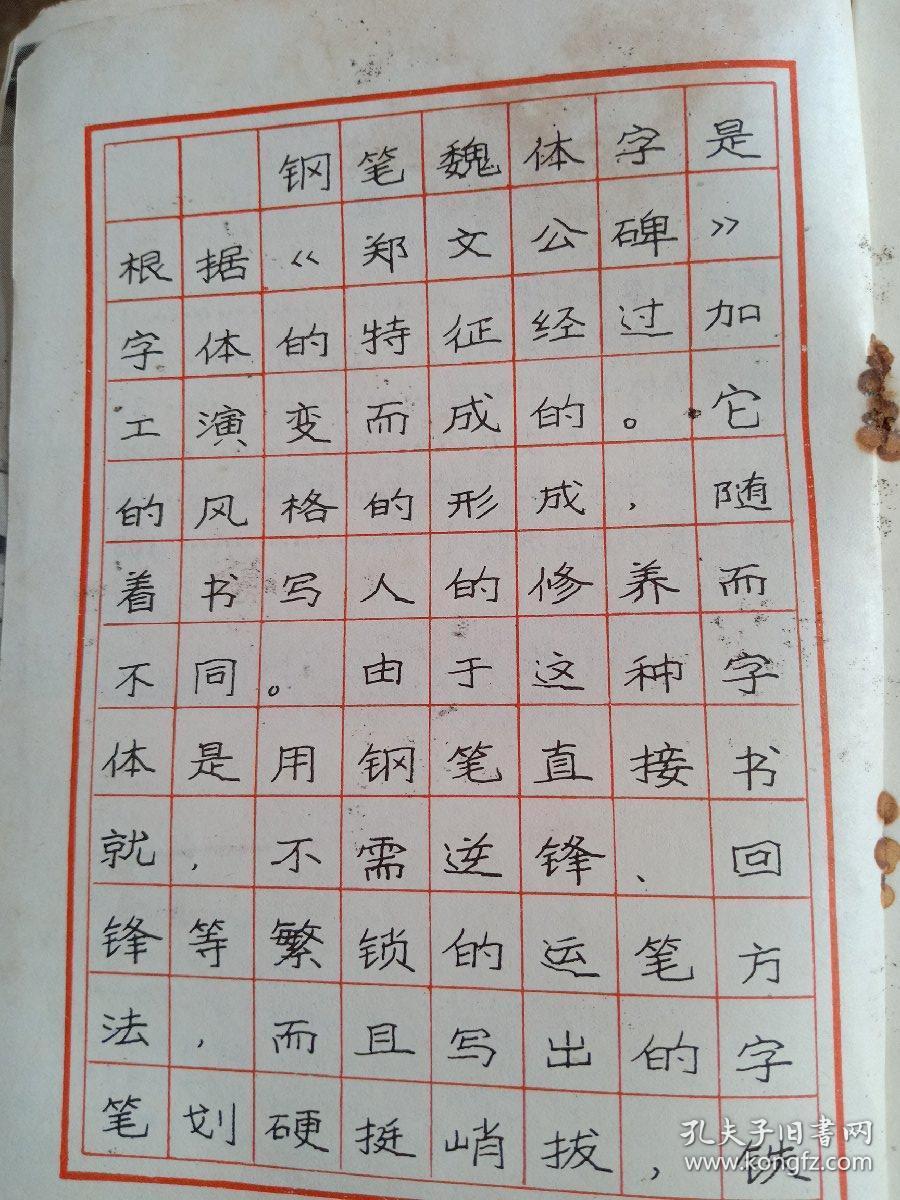 钢笔魏体字是
根据《郑文公碑》
字体的特征经过加
工演变而成的。它
的风格的形成，随
着书写人的修养而
不同。由于这种字
体是用钢笔直接书
就，不需逆锋、回
锋等繁锁的运笔方
法，而且写出的字
笔划硬挺峭拔，铁
孔夫子旧书网
www.kongfz.com